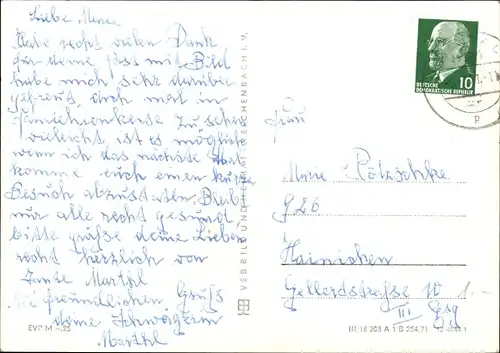 Liebe
Habe recht vielen Dank
für deine Post mit Bild
habe mich sehr darüber
gefreut, doch mal in
zu sehen
vielleicht ist es möglich
wenn ich das nächste Mal
komme euch einen kurzen
Besuch abzustatten. Bleibt
mir alle recht gesund,
bitte grüße deine Lieben
recht herzlich von
Tante Marthl
Die freundlichen Gruß
deine Schwägerin
Marthl
EVP M
VEB BILD UND HEIMAT REICHENBACH I. V.
10
DEUTSCHE
DEMOKRATISCHE REPUBLIK
Frau
Marie
926
Hainichen
Gellertstraße 10
III Esg
III/18 203 A 1 B 254/71